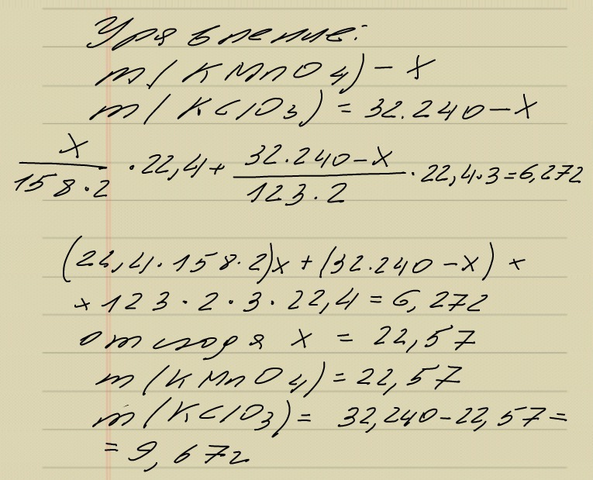 Уравнение:
m(KMnO4) - x
m(KClO3) = 32.240 - x
x / 158·2 · 22,4 + 32.240 - x / 123·2 · 22,4·3 = 6,272
(22,4·158·2)x + (32.240 - x) ×
× 123·2·3·22,4 = 6,272
отсюда x = 22,57
m(KMnO4) = 22,57
m(KClO3) = 32,240 - 22,57 =
= 9,67г